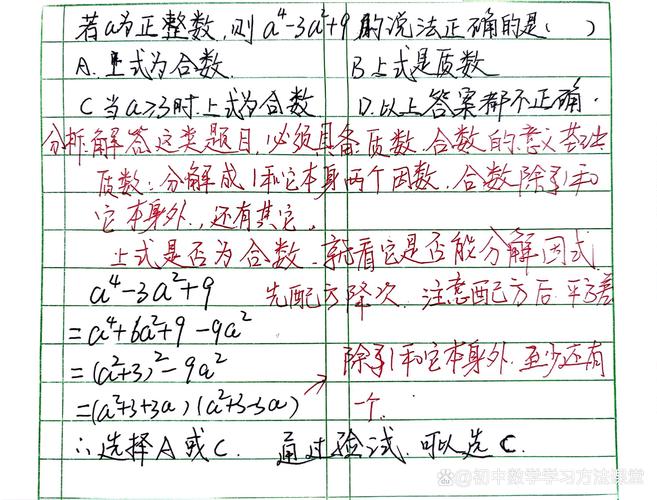 若a为正整数,则a⁴-3a²+9的说法正确的是( )
A.上式为合数. B上式是质数
C当a≥3时,上式为合数 D.以上答案都不正确.
分析:解答这类题目,必须具备质数.合数的意义基础
质数:分解成1和它本身两个因数.合数除了1和
它本身外,还有其它.
上式是否为合数.就看它是否能分解因式
a⁴-3a²+9 先配方降次.注意配方后平方差
=a⁴+6a²+9-9a²
=(a²+3)²-9a² 除了1和它本身外.至少还有
=(a²+3+3a)(a²+3-3a) 一个.
∴选择A或C. 通过验试.可以选C.
初中数学学习方法课堂